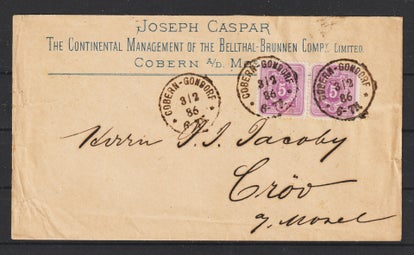 JOSEPH CASPAR
THE CONTINENTAL MANAGEMENT OF THE BELLTHAL-BRUNNEN COMPY. LIMITED.
COBERN A/D. MOSEL
COBERN-GONDORF
3/2
86
6-7N
COBERN-GONDORF
3/2
86
6-7N
5
COBERN-GONDORF
3/2
86
6-7N
5
Herrn F. J. Jacoby
Cröv
a/Mosel